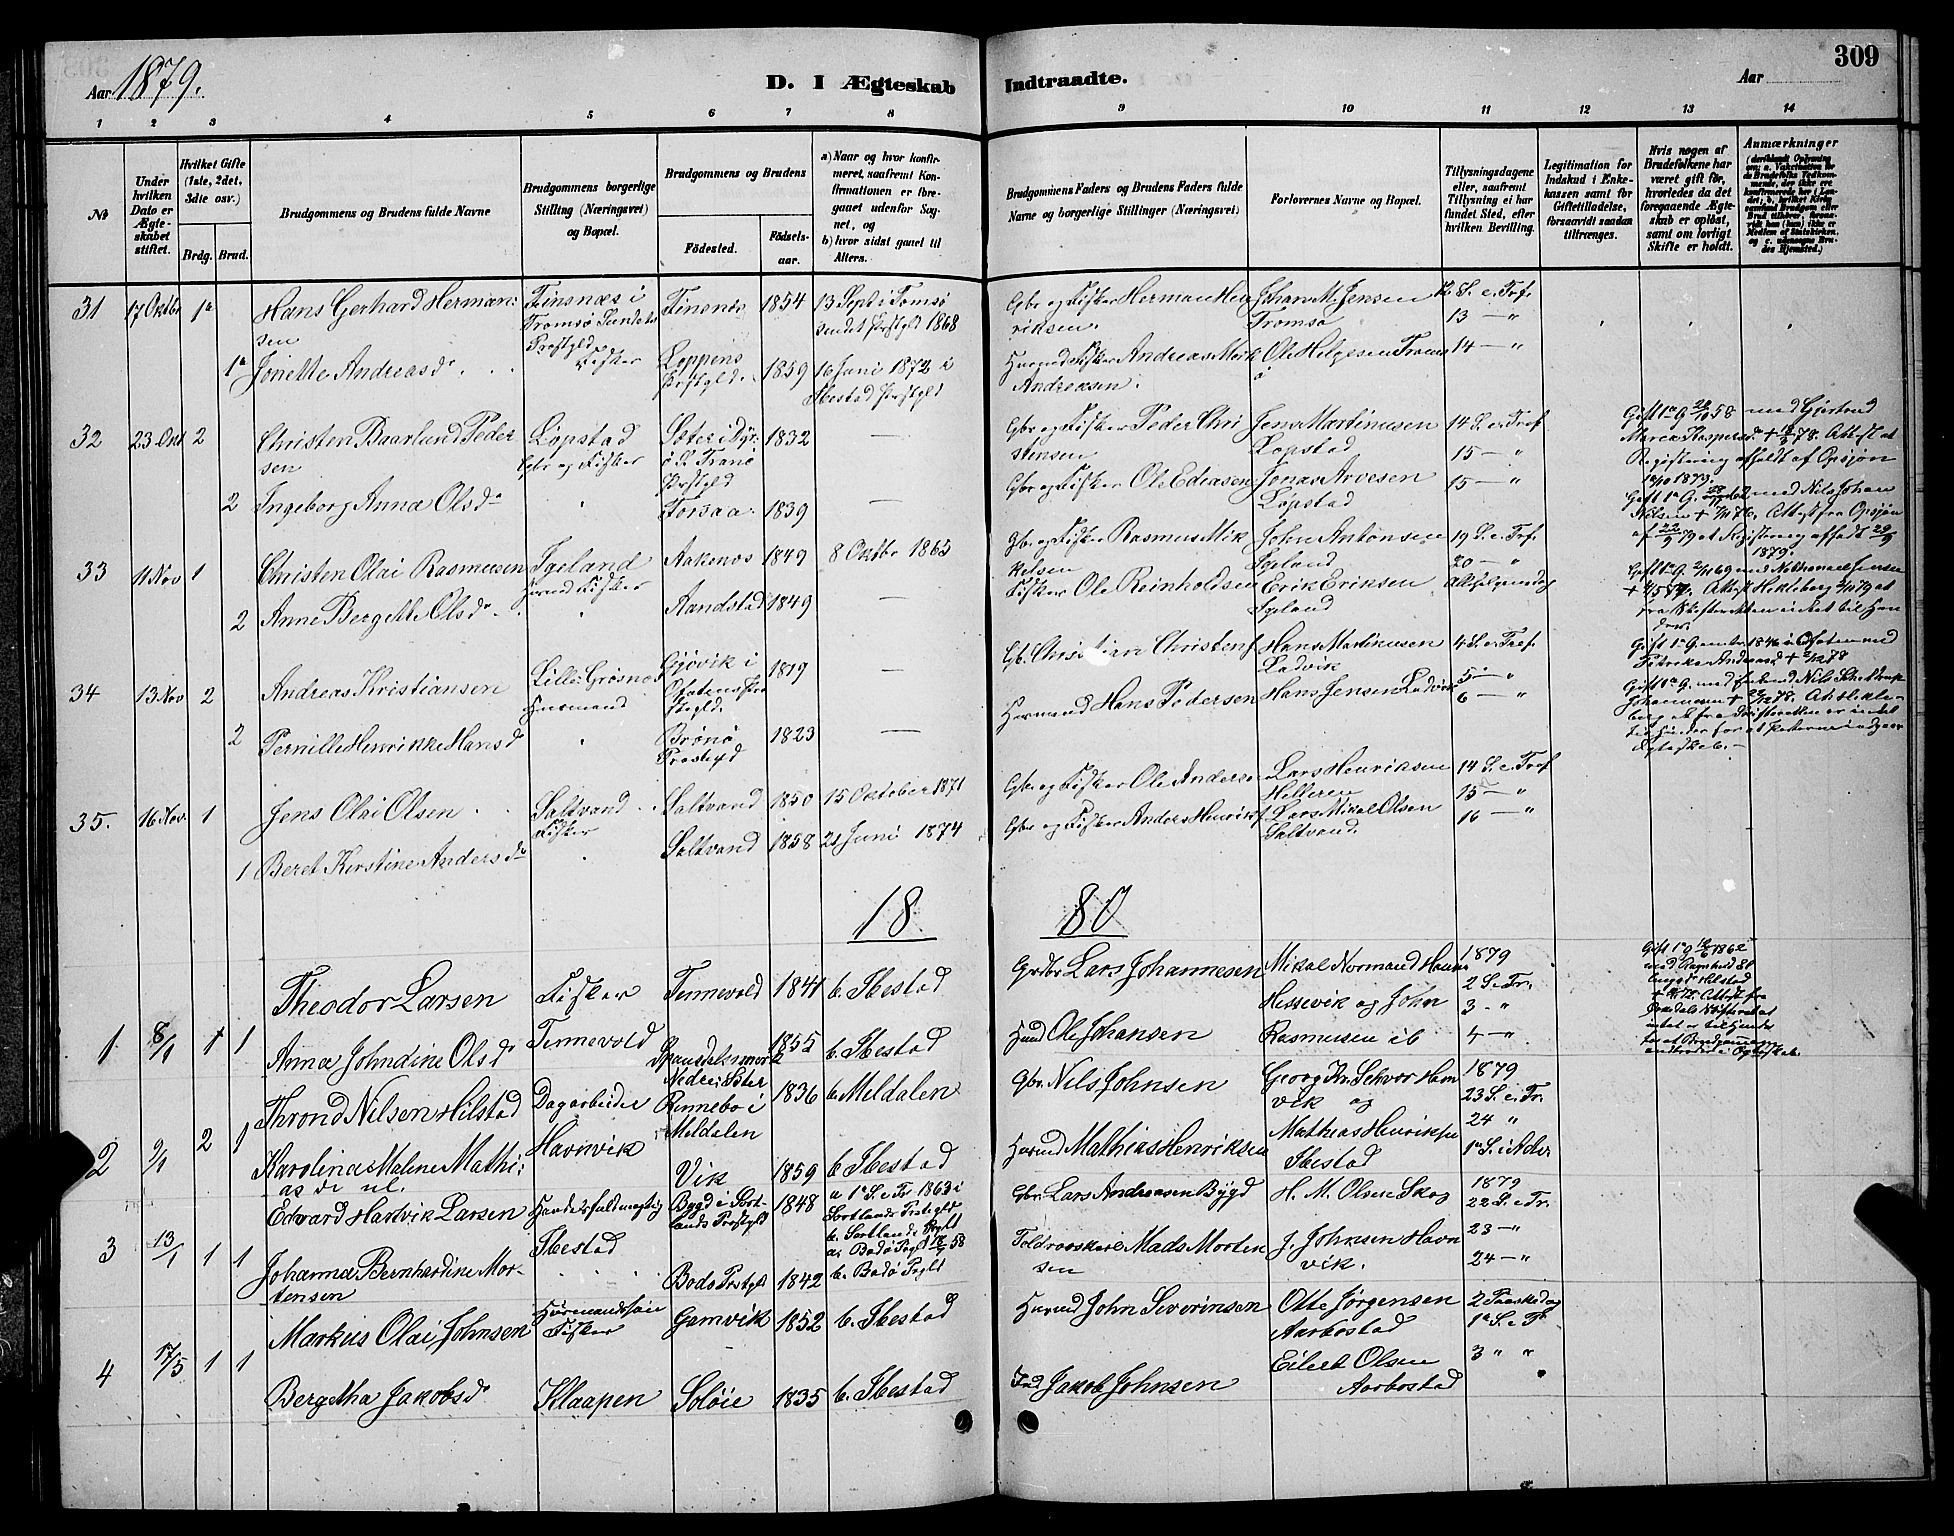 Aar 1879.
D. I Ægteskab
Indtraadte.
Aar
309
1 2 3 4 5 6 7 8 9 10 11 12 13 14
№
Under hvilken Dato er Ægteskabet stiftet.
Hvilket Gifte (1ste, 2det, 3die osv.)
Brdg. Brud.
Brudgommens og Brudens fulde Navne
Brudgommens borgerlige Stilling (Næringsvei) og Bopæl.
Brudgommens og Brudens
Fødested.
Fødselsaar.
a) Naar og hvor konfirmeret, saafremt Konfirmationen er foregaaet udenfor Sognet, og
b) hvor sidst gaaet til Alters.
Brudgommens Faders og Brudens Faders fulde Navne og borgerlige Stillinger (Næringsvei)
Forlovernes Navne og Bopæl.
Tillysningsdagene eller, saafremt Tillysning ei har fundet Sted, efter hvilken Bevilling.
Legitimation for Indskud i Enkekassen samt for Giftetilladelse, forsaavidt saadan tiltrænges.
Hvis nogen af Brudefolkene har været gift før, hvorledes da det foregaaende Ægteskab er opløst, samt om lovligt Skifte er holdt.
Anmærkninger
31 17 Oktbr 1a Hans Gerhard Hermansen Finsnæs i Tromsø Sundets Prestgld Fisker Finsnæs 1854 13 Sept i Tomsø sundet Prstgld 1868
Gbr og Fisker Herman Henriksen. Johan M. Jensen Tromsø 12 S. e. Trf. 13 — "
1a Jonette Andreasdr Loppens Prstgld. 1859 16 Juni 1872 i Ibestad Prstgld
Husmd Fisker Andreas Mork Andreasen. Ole Helgesen Tromsø 14 — "
32 23 Okt 2 Christen Baarlund Pedersen Løpstad Gbr og Fisker Sæter i Dyrø S. Tranø Prstgld 1832 —
Gbr og Fisker Peder Christensen Jens Martinusen Løpstad 14 S. e. Tref 15 — "
Gift 1a G 1858 med Gjertrud Maren Kaspersd + 78. Attest at Registrering afholdt af Opsjøn 1879.
2 Ingeborg Anna Olsdr Torsaa 1839 —
Gbr og Fisker Ole Edeasen Jonas Arvesen Løpstad 15 — "
Gift 1a G. 62 med Nils Johan Nilsen + 76. Attest fra Opsjøn af 22/9 79 at Registrering afholdt 29/9 1879.
33 11 Nov 1 Christen Olai Rasmussen Igeland Husmd Fisker Aakenæs 1849 8 Oktbr 1865
Gbr og Fisker Rasmus Mikkelsen John Antonsen Igeland 19 S. e. Trf. 20 — "
2 Anne Bergette Olsdr Aandstad 1849 —
Fisker Ole Reinholdsen Erik Eriksen Igeland Alhelgensdag
34 13 Nov 2 Andreas Kristiansen Lille-Grøsnes Husmand Gjøvik i Ofotens Prstgld. 1819 —
Gb. Christian Christens. Hans Martinusen Ladvik 4 S. e. Tref 5 — "
2 Pernille Henrikke Hansdr Brønø Prestegd 1823 —
Husmand Hans Pedersen Hans Jensen Ladvik 6 — "
35. 16 Nov. 1 Jens Olai Olsen Saltvand Fisker Saltvand 1850 15 Oktober 1871
Gbr. og Fisker Ole Anders. Lars Henriksen Helleren 14 S. e. Tref 15 — "
1 Beret Kirstine Andersdr Saltvand 1858 21 Juni 1874
Gbr og Fisker Anders Henriks. Lars Mikal Olsen Saltvand. 16 — "
18 80
1 8/1 1 1 Theodor Larsen Fisker Tennevold Tennevold 1841 b. Ibestad
Grdbr Lars Johannesen Mikal Normand Hessevik og John Rasmussen ib 1879 2 S. e. Tr. 3 - " 4 - "
Anna Johndine Olsdr 1855 b. Ibestad
Husmd Ole Johansen
2 9/1 2 1 Thrond Nilsen Hilstad Dagarbeider Havnvik Rennebo i Meldalen 1836 b. Meldalen
Gbr. Nils Johnsen Georg Kr. Havnvik og Mathias Henriksen Ibestad 1879 23 S. e. Tr. 24 " 1a S. i Adv
Karolina Malene Mathiasdr Vik 1859 b. Ibestad
Husmd Mathias Henriksen
3 13/1 1 1 Edvard Hartvik Larsen Handelsfuldmægtig Ibestad Bygd i Sortlands Prstgld 1848 a 1a S. e Tr 1863 i Sortlands Prstgld b. Sortlands Prgld
Gbr. Lars Andreasen Bygd H. M. Olsen Skog 1879 22 S. e Tr. 23 — "
Johanna Bernhardine Mortensen Bodø Prstgld 1842 a. Bodø Prgld 58 b. Bodø Prgld
Toldroerskarl Mads Mortensen J. Johnsen Havnvik. 24 — "
4 17/5 1 1 Markus Olai Johnsen Husmandssøn Fisker Gamvik 1852 b. Ibestad
Husmd John Severinsen Otte Jørgensen Aarbostad 2 Paaskedag 1a S. e P.
Bergetha Jakobsdr Klaapen Soløie 1835 b. Ibestad
Ind Jakob Johnsen Eilert Olsen Aarbostad 3 " "